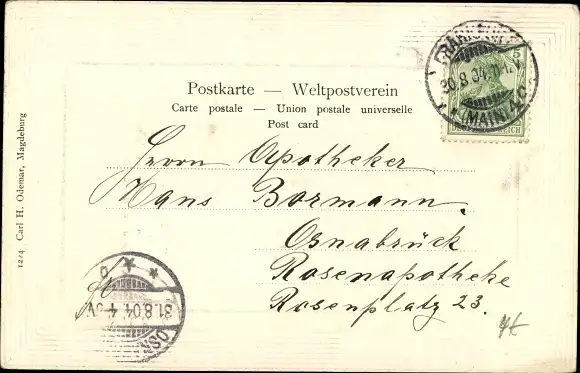 Postkarte — Weltpostverein
Carte postale — Union postale universelle
Post card
FRANKFURT
30.8.04
(MAIN)
5
DEUTSCHES REICH
Herrn Apotheker
Hans Bormann.
Osnabrück
Rosenapotheke
Rosenplatz 23.
1224 Carl H. Odemar, Magdeburg
31.8.04